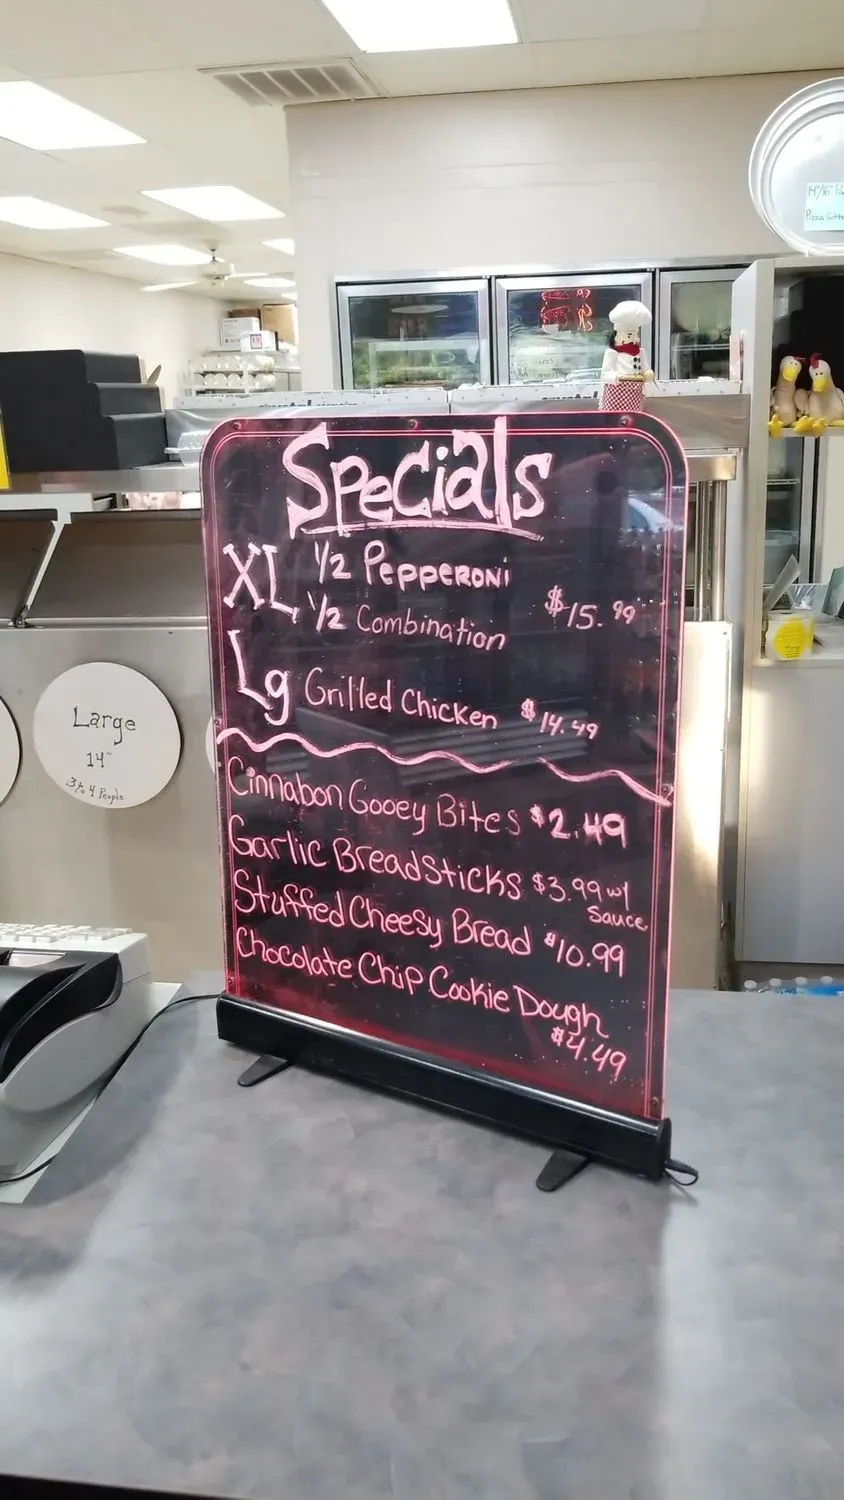 Specials
XL 1/2 Pepperoni
1/2 Combination $15.99
Lg Grilled Chicken $14.49
Cinnabon Gooey Bites $2.49
Garlic Breadsticks $3.99 w/
Sauce
Stuffed Cheesy Bread $10.99
Chocolate Chip Cookie Dough
$4.49
Large
14"
3 to 4 People
14"/16"
Pizza